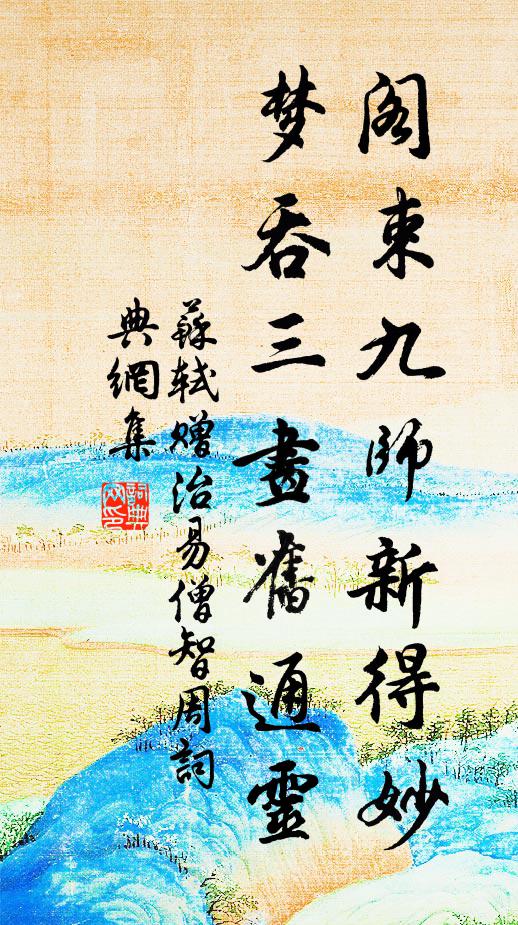 阁束九師新得妙
梦吞三畫舊通靈
蘇軾贈治易僧智周詞
典網集
詞典网印